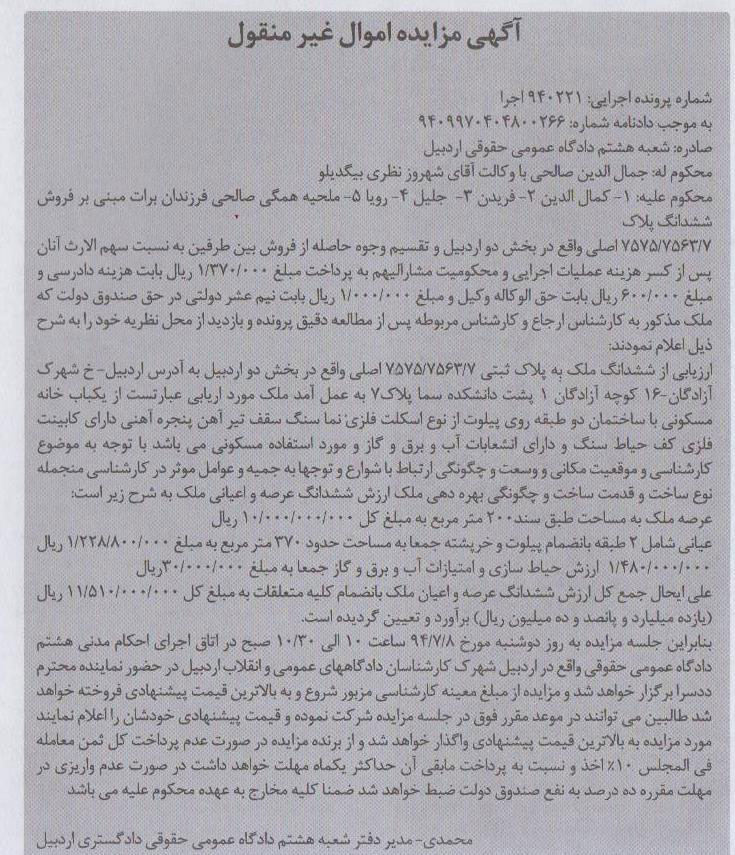 آگهی مزایده اموال غیر منقول
شماره پرونده اجرایی: ۹۴۰۲۲۱ اجرا
به موجب دادنامه شماره: ۹۴۰۹۹۷۰۴۰۴۸۰۰۲۶۶
صادره: شعبه هشتم دادگاه عمومی حقوقی اردبیل
محکوم له: جمال الدین صالحی با وکالت آقای شهروز نظری بیگدیلو
محکوم علیه: ۱- کمال الدین ۲- فریدن ۳- جلیل ۴- رویا ۵- ملحیه همگی صالحی فرزندان برات مبنی بر فروش
ششدانگ پلاک
۷۵۷۵/۷۵۶۳/۷ اصلی واقع در بخش دو اردبیل و تقسیم وجوه حاصله از فروش بین طرفین به نسبت سهم الارث آنان
پس از کسر هزینه عملیات اجرایی و محکومیت مشارالیهم به پرداخت مبلغ ۱/۳۷۰/۰۰۰ ریال بابت هزینه دادرسی و
مبلغ ۶۰۰/۰۰۰ ریال بابت حق الوکاله وکیل و مبلغ ۱/۰۰۰/۰۰۰ ریال بابت نیم عشر دولتی در حق صندوق دولت که
ملک مذکور به کارشناس ارجاع و کارشناس مربوطه پس از مطالعه دقیق پرونده و بازدید از محل نظریه خود را به شرح
ذیل اعلام نمودند:
ارزیابی از ششدانگ ملک به پلاک ثبتی ۷۵۷۵/۷۵۶۳/۷ اصلی واقع در بخش دو اردبیل به آدرس اردبیل- خ شهرک
آزادگان-۱۶ کوچه آزادگان ۱ پشت دانشکده سما پلاک۷ به عمل آمد ملک مورد اریابی عبارتست از یکباب خانه
مسکونی با ساختمان دو طبقه روی پیلوت از نوع اسکلت فلزی نما سنگ سقف تیر آهن پنجره آهنی دارای کابینت
فلزی کف حیاط سنگ و دارای انشعابات آب و برق و گاز و مورد استفاده مسکونی می باشد با توجه به موضوع
کارشناسی و موقعیت مکانی و وسعت و چگونگی ارتباط با شوارع و توجها به جمیه و عوامل موثر در کارشناسی منجمله
نوع ساخت و قدمت ساخت و چگونگی بهره دهی ملک ارزش ششدانگ عرصه و اعیانی ملک به شرح زیر است:
عرصه ملک به مساحت طبق سند۲۰۰ متر مربع به مبلغ کل ۱۰/۰۰۰/۰۰۰/۰۰۰ ریال
عیانی شامل ۲ طبقه بانضمام پیلوت و خرپشته جمعا به مساحت حدود ۳۷۰ متر مربع به مبلغ ۱/۲۲۸/۸۰۰/۰۰۰ ریال
۱/۴۸۰/۰۰۰/۰۰۰ ارزش حیاط سازی و امتیازات آب و برق و گاز جمعا به مبلغ ۳۰/۰۰۰/۰۰۰ریال
علی ایحال جمع کل ارزش ششدانگ عرصه و اعیان ملک بانضمام کلیه متعلقات به مبلغ کل ۱۱/۵۱۰/۰۰۰/۰۰۰ ریال
(یازده میلیارد و پانصد و ده میلیون ریال) برآورد و تعیین گردیده است.
بنابراین جلسه مزایده به روز دوشنبه مورخ ۹۴/۷/۸ ساعت ۱۰ الی ۱۰/۳۰ صبح در اتاق اجرای احکام مدنی هشتم
دادگاه عمومی حقوقی واقع در اردبیل شهرک کارشناسان دادگاههای عمومی و انقلاب اردبیل در حضور نماینده محترم
ددسرا برگزار خواهد شد و مزایده از مبلغ معینه کارشناسی مزبور شروع و به بالاترین قیمت پیشنهادی فروخته خواهد
شد طالبین می توانند در موعد مقرر فوق در جلسه مزایده شرکت نموده و قیمت پیشنهادی خودشان را اعلام نمایند
مورد مزایده به بالاترین قیمت پیشنهادی واگذار خواهد شد و از برنده مزایده در صورت عدم پرداخت کل ثمن معامله
فی المجلس ۱۰٪ اخذ و نسبت به پرداخت مابقی آن حداکثر یکماه مهلت خواهد داشت در صورت عدم واریزی در
مهلت مقرره ده درصد به نفع صندوق دولت ضبط خواهد شد ضمنا کلیه مخارج به عهده محکوم علیه می باشد
محمدی- مدیر دفتر شعبه هشتم دادگاه عمومی حقوقی دادگستری اردبیل